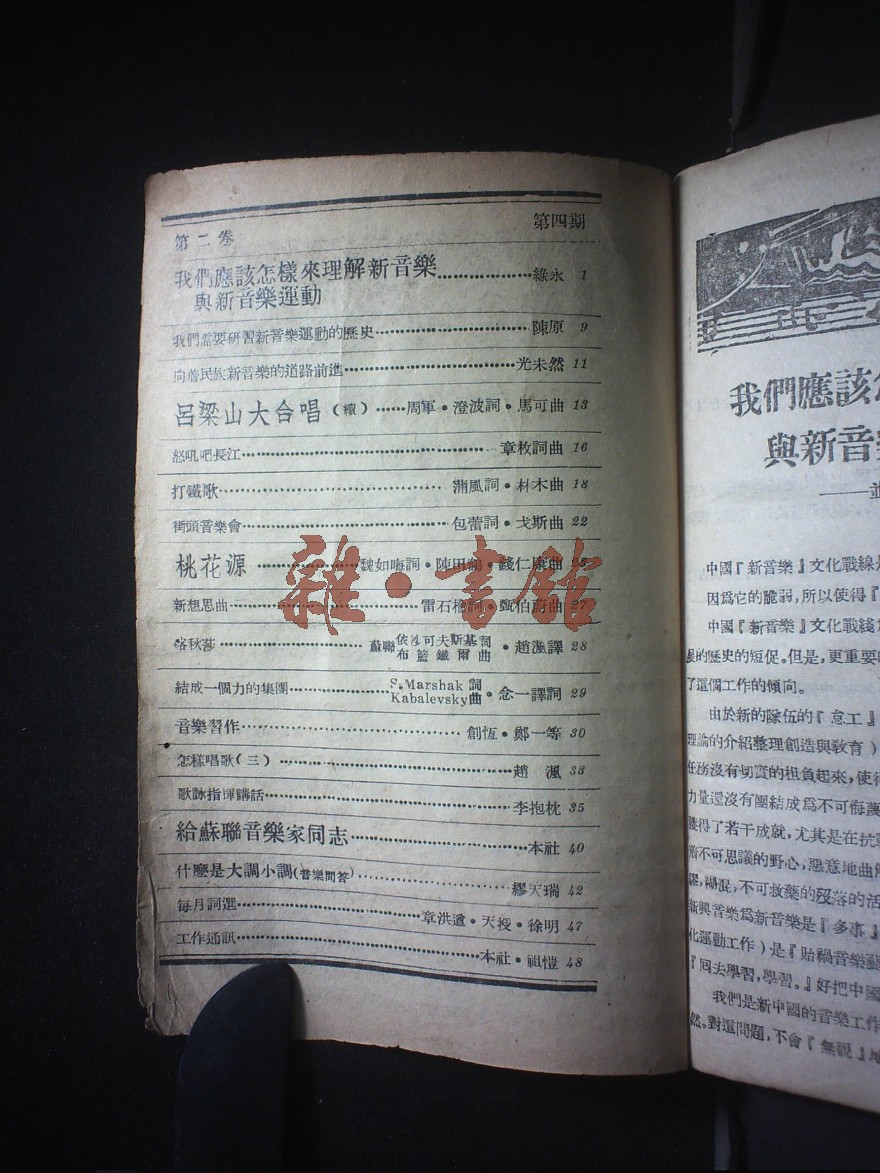 第二卷 第四期
我們應該怎樣來理解新音樂
與新音樂運動 綠永 1
我們需要研習新音樂運動的歷史 陳原 9
向着民族新音樂的道路前進 光未然 11
呂梁山大合唱（續） 周軍・澄波詞・馬可曲 13
怒吼吧長江 章枚詞曲 16
打鐵歌 蒲風詞・材木曲 18
街頭音樂會 包蕾詞・戈斯曲 22
桃花源 魏如晦詞・陳田鶴・錢仁康曲 25
新想思曲 雷石榆詞・甄伯蔚曲 27
喀秋莎 蘇聯 依沙可夫斯基詞 布籃鐵爾曲・趙渢譯 28
結成一個力的集團 S. Marshak 詞 Kabalevsky 曲・念一譯詞 29
音樂習作 創恆・鄭一等 30
怎樣唱歌（三） 趙渢 33
歌詠指揮講話 李抱忱 35
給蘇聯音樂家同志 本社 40
什麼是大調小調（音樂問答） 繆天瑞 42
每月詞選 章洪遒・天授・徐明 47
工作通訊 本社・祖愷 48
雜・書館
我們應該怎
與新音樂
——並
中國『新音樂』文化戰線是
因爲它的脆弱，所以使得『
中國『新音樂』文化戰綫
的歷史的短促。但是，更重要
了這個工作的傾向。
由於新的隊伍的『怠工』
理論的介紹整理創造與敎育）
任務沒有切實的担負起來，使得
力量還沒有團結成爲不可侮
獲得了若干成就，尤其是在抗
不可思議的野心，惡意地曲解
糊混，不可救藥的沒落的活
新興音樂爲新音樂是『多事』
化運動工作）是『貽禍音樂藝
『回去學習，學習。』好把中國
我們是新中國的音樂工作
然。對這問題，不會『無視』